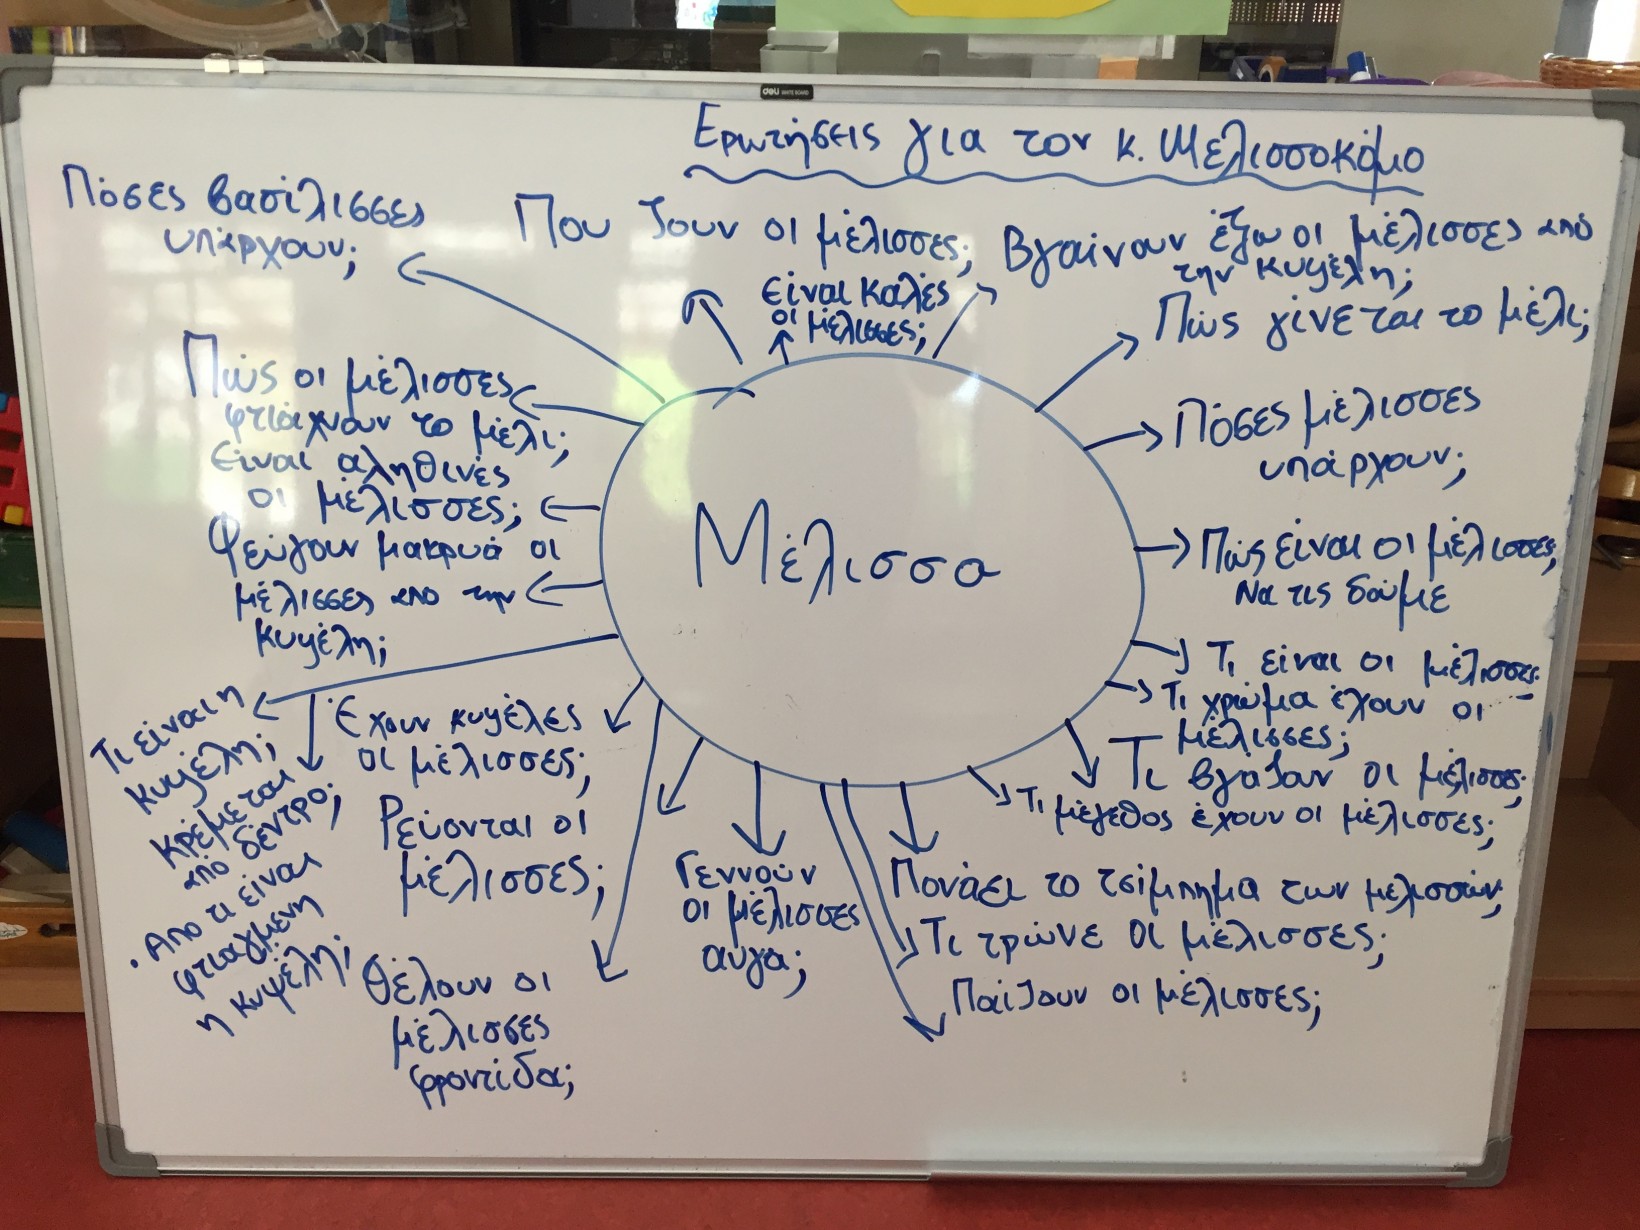 deli WHITE BOARD
Ερωτήσεις για τον κ. Μελισσοκόμο
Πόσες βασίλισσες
υπάρχουν;
Που ζουν οι μέλισσες;
είναι καλές
οι μέλισσες;
Βγαίνουν έξω οι μέλισσες από
την κυψέλη;
Πώς γίνεται το μέλι;
Πόσες μέλισσες
υπάρχουν;
Πώς είναι οι μέλισσες;
Να τις δούμε
Τι είναι οι μέλισσες;
Τι χρώμα έχουν οι
μέλισσες;
Τι βγάζουν οι μέλισσες;
Τι μέγεθος έχουν οι μέλισσες;
Πονάει το τσίμπημα των μελισσών;
Τι τρώνε οι μέλισσες;
Παίζουν οι μέλισσες;
Γεννούν
οι μέλισσες
αυγα;
Θέλουν οι
μέλισσες
φροντίδα;
Ρεύονται οι
μέλισσες;
Έχουν κυψέλες
οι μέλισσες;
Τι είναι η
κυψέλη;
Κρέμεται
από δέντρο;
. Απο τι είναι
φτιαγμένη
η κυψέλη;
Φεύγουν μακρυά οι
μέλισσες απο την
κυψέλη;
Είναι αληθινές
οι μέλισσες;
Πώς οι μέλισσες
φτιάχνουν το μέλι;
Μέλισσα